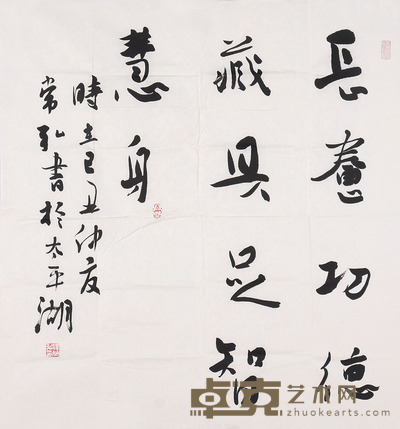 長養功德
藏具足智
慧身
時在己丑仲夏
常弘書於太平湖
卓克艺术网
zhuokearts.com